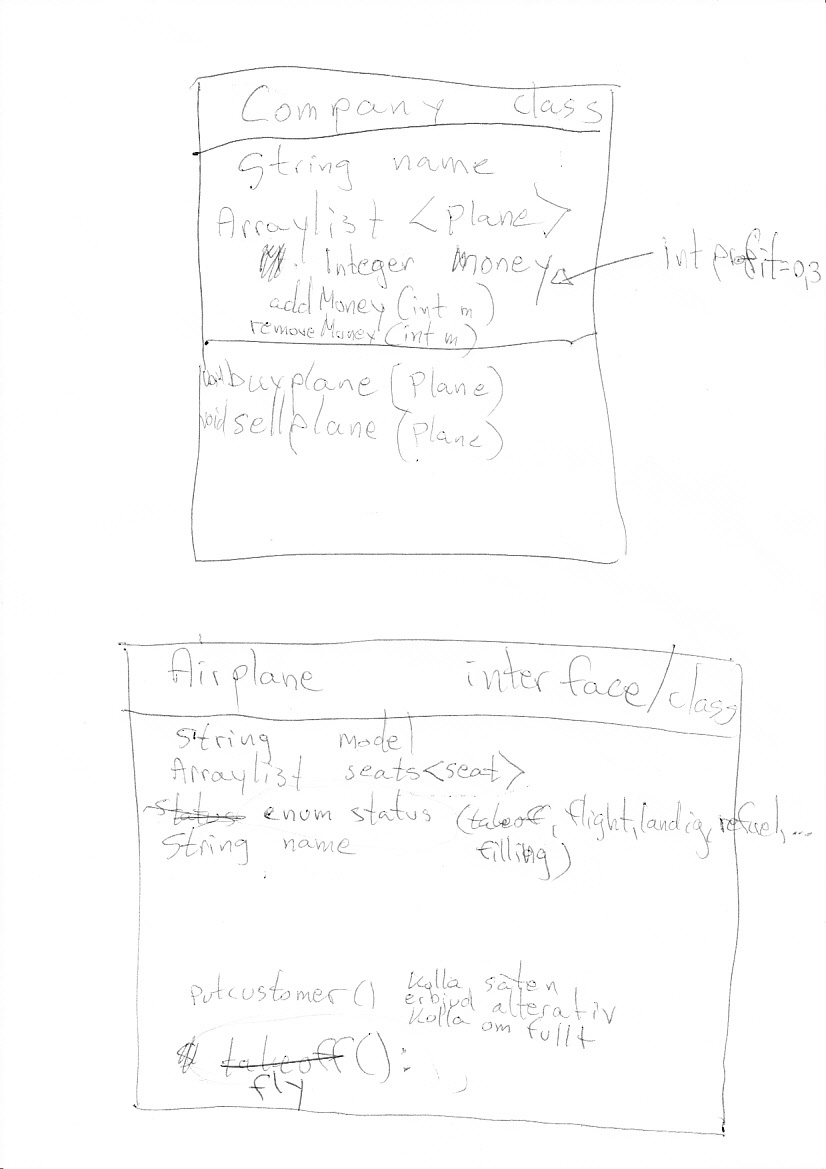 Company class
String name
Arraylist <Plane>
Integer money
int profit=0,3
addMoney (int m)
removeMoney (int m)
buyplane (Plane)
void sellplane (Plane)
Airplane interface/class
String model
Arraylist seats<seat>
status enum status (takeoff, flight, landig, refuel, ...
String name filling)
putcustomer () Kolla säten
erbjud alterativ
Kolla om fullt
takeoff ():
fly